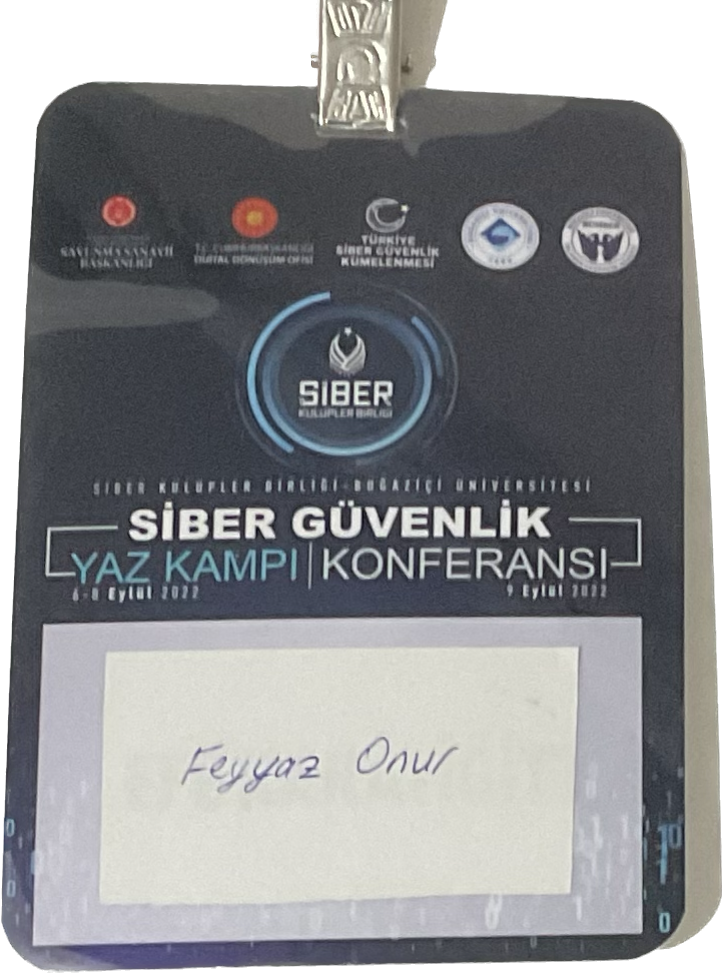 SAVUNMA SANAYİİ
BAŞKANLIĞI
T.C. CUMHURBAŞKANLIĞI
DİJİTAL DÖNÜŞÜM OFİSİ
TÜRKİYE
SİBER GÜVENLİK
KÜMELENMESİ
SİBER
KULÜPLER BİRLİĞİ
SİBER KULÜPLER BİRLİĞİ-BOĞAZİÇİ ÜNİVERSİTESİ
SİBER GÜVENLİK
YAZ KAMPI | KONFERANSI
6-8 Eylül 2022
9 Eylül 2022
Feyyaz Onur